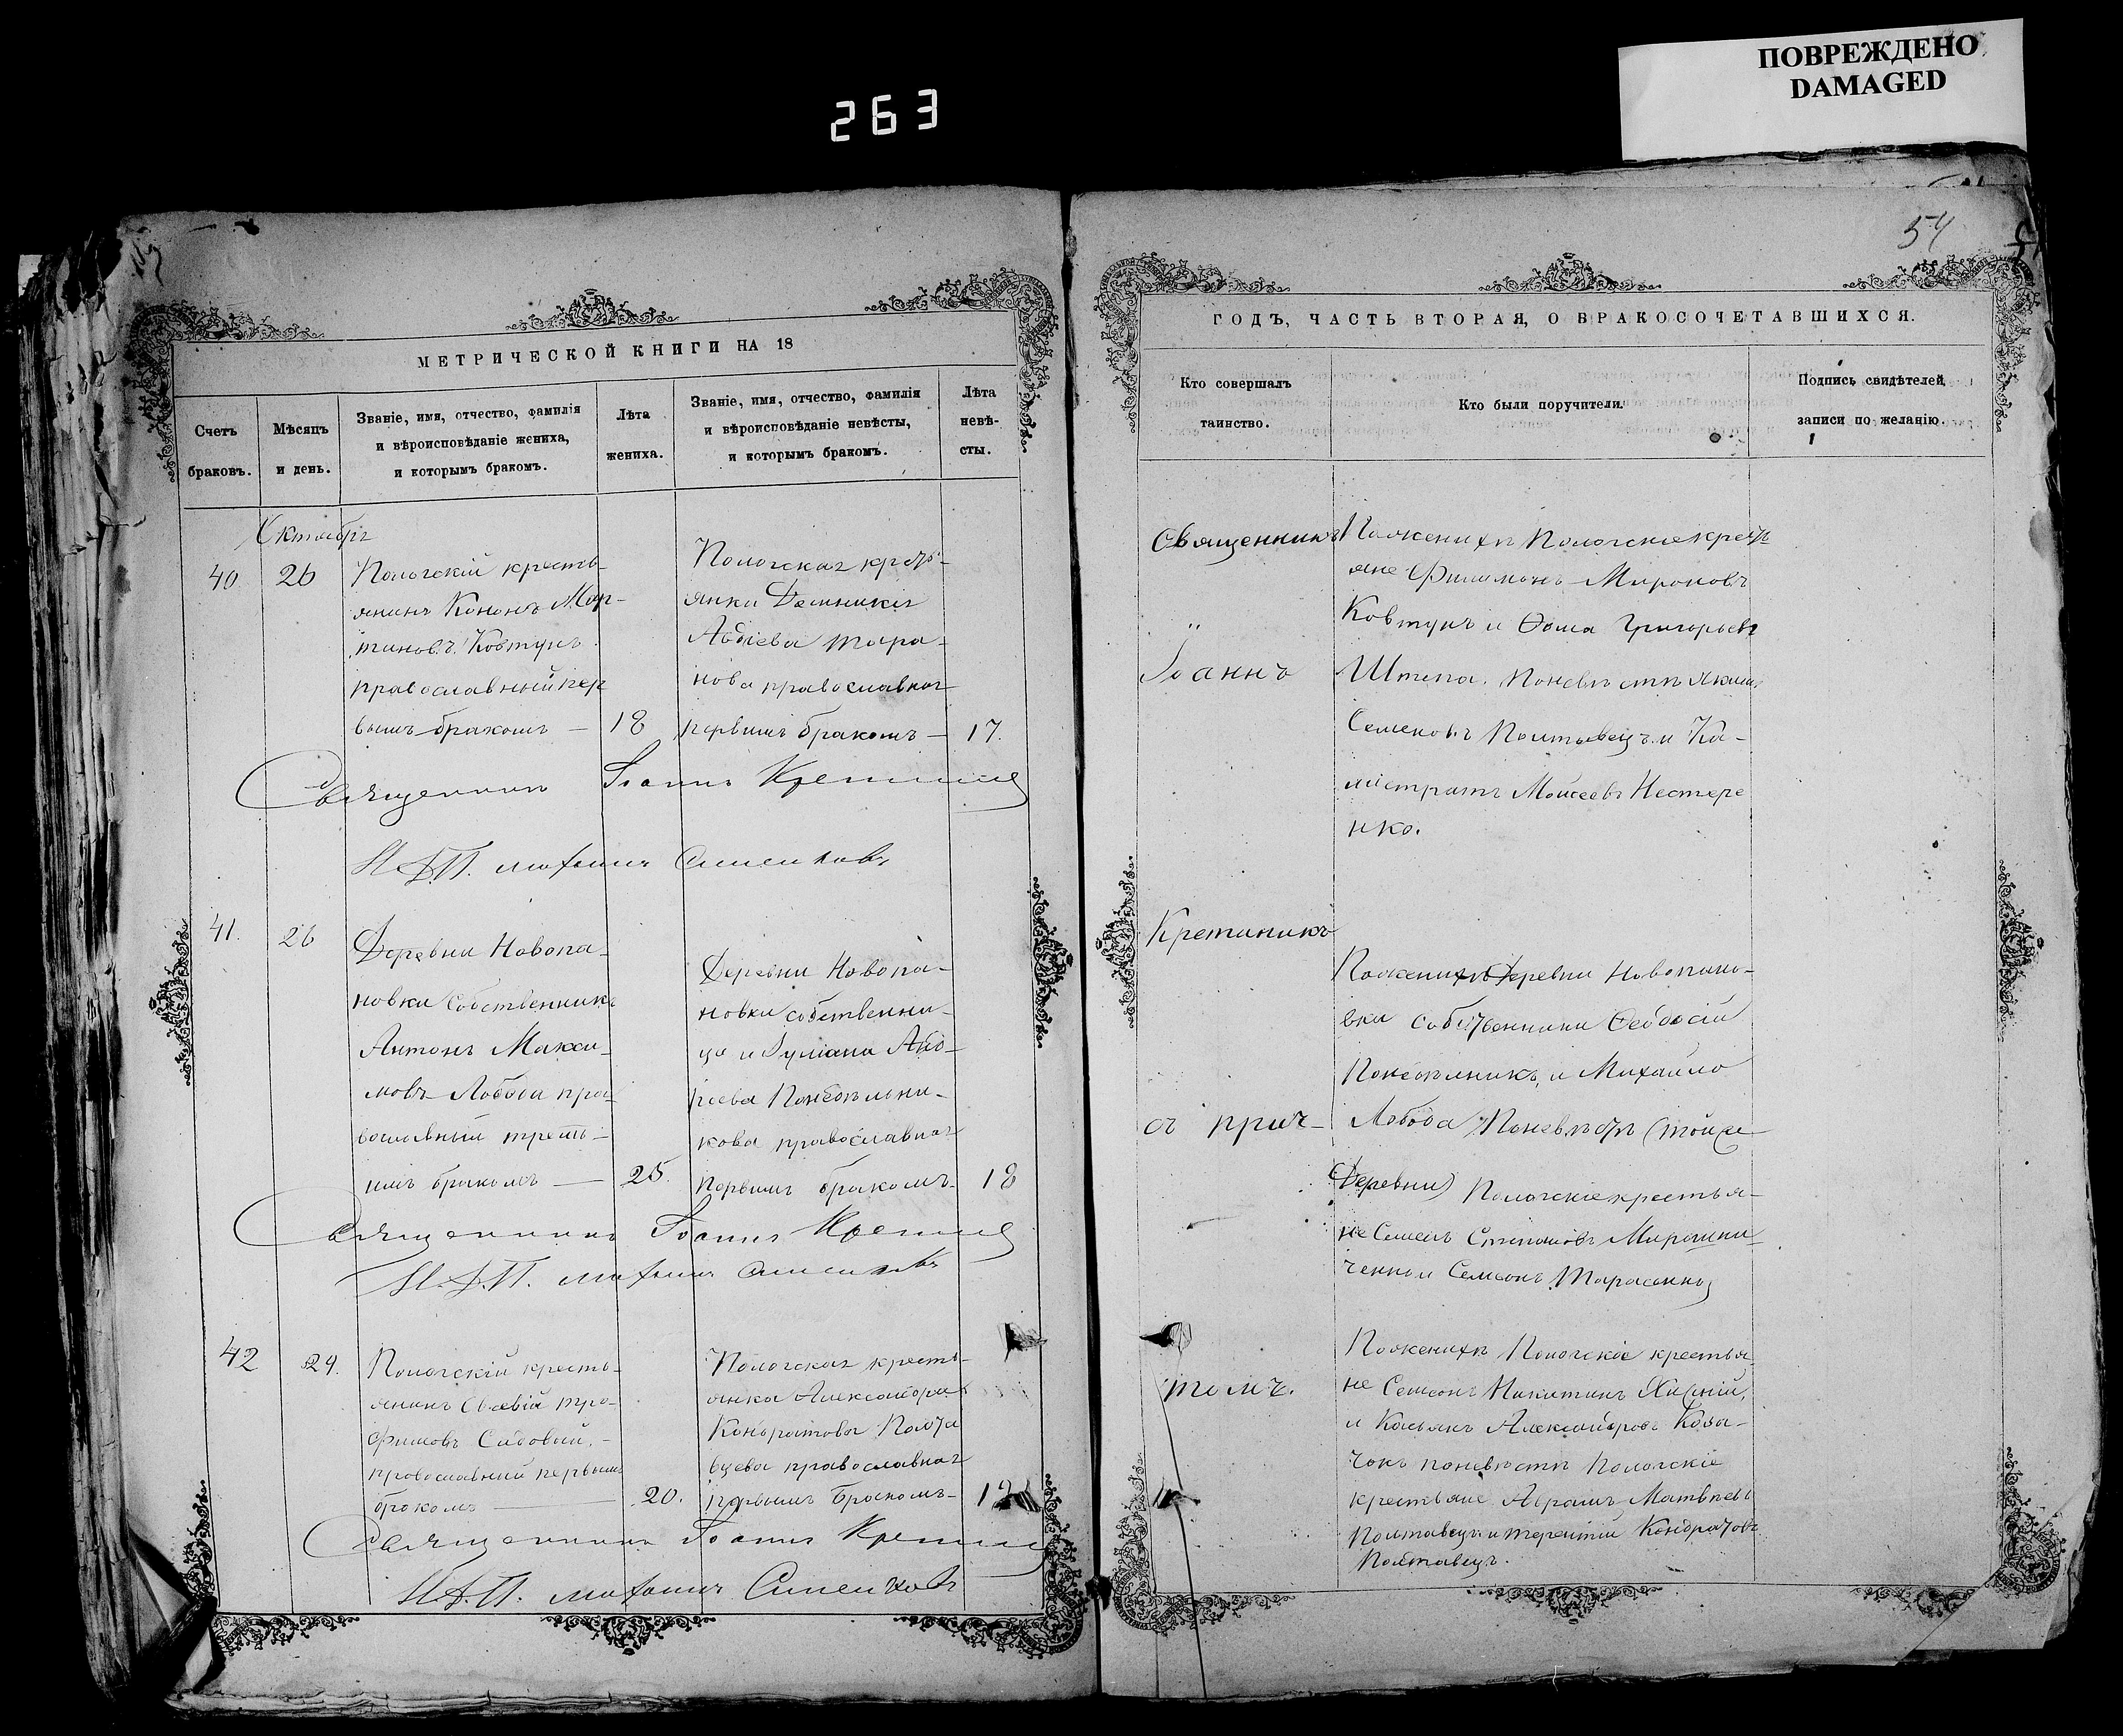 ПОВРЕЖДЕНО
DAMAGED
263
54
МЕТРИЧЕСКОЙ КНИГИ НА 18
Счетъ
браковъ.
Мѣсяцъ
и день.
Званіе, имя, отчество, фамилія
и вѣроисповѣданіе жениха,
и которымъ бракомъ.
Лѣта
жениха.
Званіе, имя, отчество, фамилія
и вѣроисповѣданіе невѣсты,
и которымъ бракомъ.
Лѣта
невѣ-
сты.
Октябрь
40
26
Пологскій кресть-
янинъ Кононъ Мар-
тиновъ Ковтунъ
православный пер
вымъ бракомъ —
18
Пологская кресть-
янка
Авдіева Тара-
нова православная
первымъ бракомъ —
17.
Священникъ Іоаннъ
И.Д.П.
41.
26
Деревни Новопа-
новки собственникъ
Антонъ Макси-
мовъ Лобода пра-
вославный треть-
имъ бракомъ —
25.
Деревни Новопа-
новки собственни-
ца Иуліана Анд-
реева Понедѣльни-
кова православная
первымъ бракомъ-
18
Священникъ Іоаннъ
И.Д.П.
42
29.
Пологскій кресть-
янинъ Тро-
фимовъ Садовый,-
православный первымъ
бракомъ —
20.
Пологская кресть-
янка Александра
Кондратова Полта
вцева православная
первымъ бракомъ-
Священникъ Іоаннъ
И.Д.П.
ГОДЪ, ЧАСТЬ ВТОРАЯ, О БРАКОСОЧЕТАВШИХСЯ.
Кто совершалъ
таинство.
Кто были поручители.
Подпись свидѣтелей
записи по желанію.
Священникъ
Іоаннъ
Кретининъ
съ прич-
томъ.
По женихѣ Пологскіе кресть
яне Филимонъ Мироновъ
Ковтунъ и Ѳома Григорьевъ
Штепа. По невѣстѣ Яким
Семеновъ Полтавецъ и Ка-
листратъ Моисеевъ Нестере
нко.
По женихѣ деревни Новопано-
вки собственники Ѳеодосій
Понедѣльникъ и Михайло
Лобода По невѣстѣ (той же
Деревни) Пологскіе крестья-
не Семенъ Степановъ Мирошни-
ченко и Семенъ Тарасенко
По женихѣ Пологскіе крестья-
не Семенъ Никитинъ
и Касьянъ Александровъ Коза-
чокъ по невѣстѣ Пологскіе
крестьяне Аврамъ Матвѣевъ
Полтавецъ и Терентій Кондратовъ
Полтавецъ.